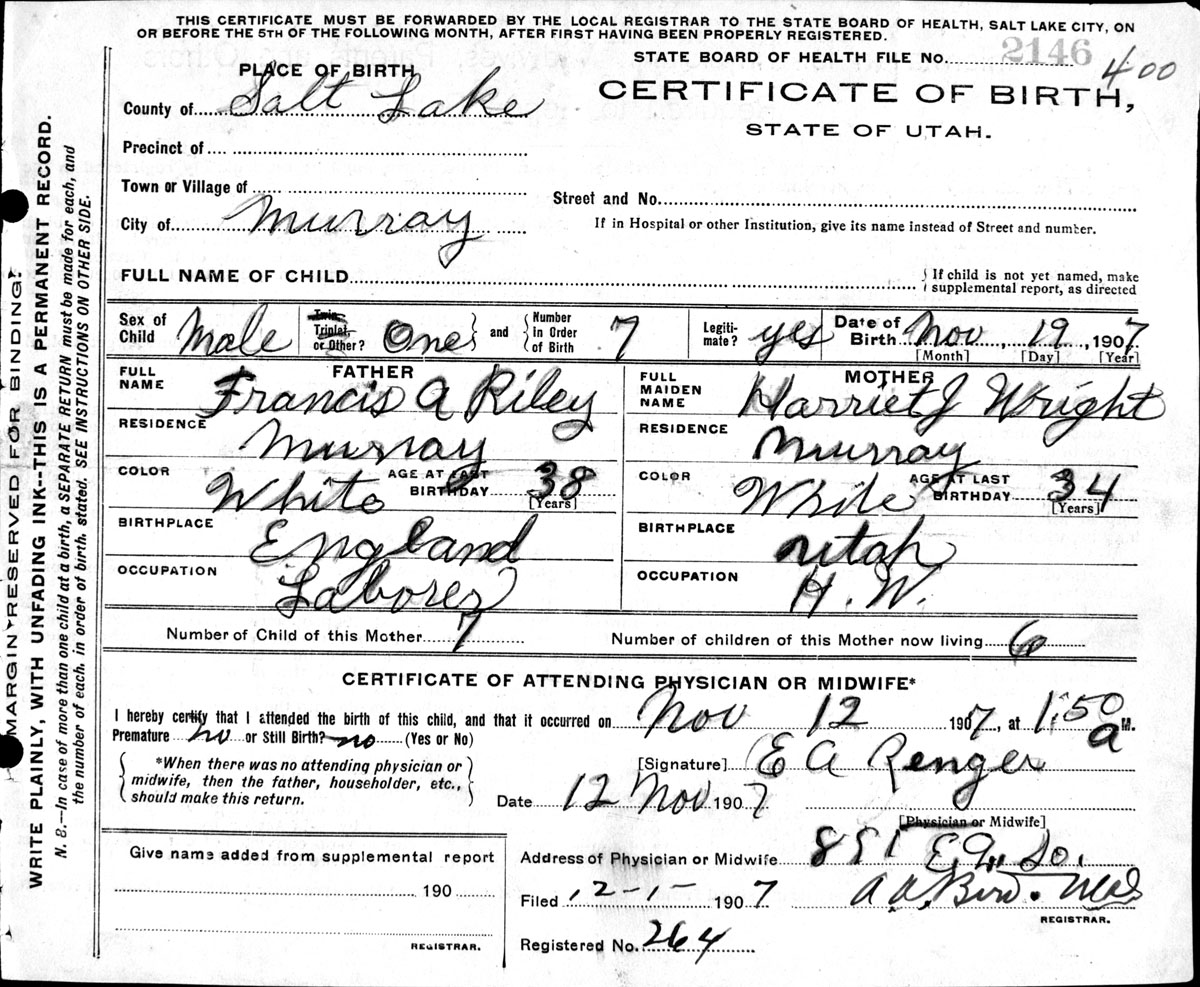 THIS CERTIFICATE MUST BE FORWARDED BY THE LOCAL REGISTRAR TO THE STATE BOARD OF HEALTH, SALT LAKE CITY, ON
OR BEFORE THE 5TH OF THE FOLLOWING MONTH, AFTER FIRST HAVING BEEN PROPERLY REGISTERED.
STATE BOARD OF HEALTH FILE NO. 2146 400
PLACE OF BIRTH
County of Salt Lake
CERTIFICATE OF BIRTH,
STATE OF UTAH.
Precinct of
Town or Village of
Street and No.
City of Murray
If in Hospital or other Institution, give its name instead of Street and number.
FULL NAME OF CHILD
{ If child is not yet named, make
supplemental report, as directed
Sex of Child Male
Twin, Triplet, or Other? One } and { Number in Order of Birth 7
Legiti-mate? yes
Date of Birth Nov, 19, 1907
[Month] [Day] [Year]
FATHER
FULL NAME Francis A Riley
MOTHER
FULL MAIDEN NAME Harriet J Wright
RESIDENCE Murray
RESIDENCE Murray
COLOR White AGE AT LAST BIRTHDAY 38 [Years]
COLOR White AGE AT LAST BIRTHDAY 34 [Years]
BIRTHPLACE England
BIRTHPLACE Utah
OCCUPATION Laborer
OCCUPATION H. W.
Number of Child of this Mother 7
Number of children of this Mother now living 6
CERTIFICATE OF ATTENDING PHYSICIAN OR MIDWIFE*
I hereby certify that I attended the birth of this child, and that it occurred on Nov 12 1907, at 1:50 a M.
Premature no or Still Birth? no (Yes or No)
{ *When there was no attending physician or
midwife, then the father, householder, etc.,
should make this return. }
[Signature] E A Renger
Date 12 Nov 1907
[Physician or Midwife]
Give name added from supplemental report
190
REGISTRAR.
Address of Physician or Midwife So.
Filed 12-1- 1907 A. A. Bird.
REGISTRAR.
Registered No. 264
MARGIN RESERVED FOR BINDING.
WRITE PLAINLY, WITH UNFADING INK--THIS IS A PERMANENT RECORD.
N. B.—In case of more than one child at a birth, a SEPARATE RETURN must be made for each, and
the number of each, in order of birth, stated. SEE INSTRUCTIONS ON OTHER SIDE.